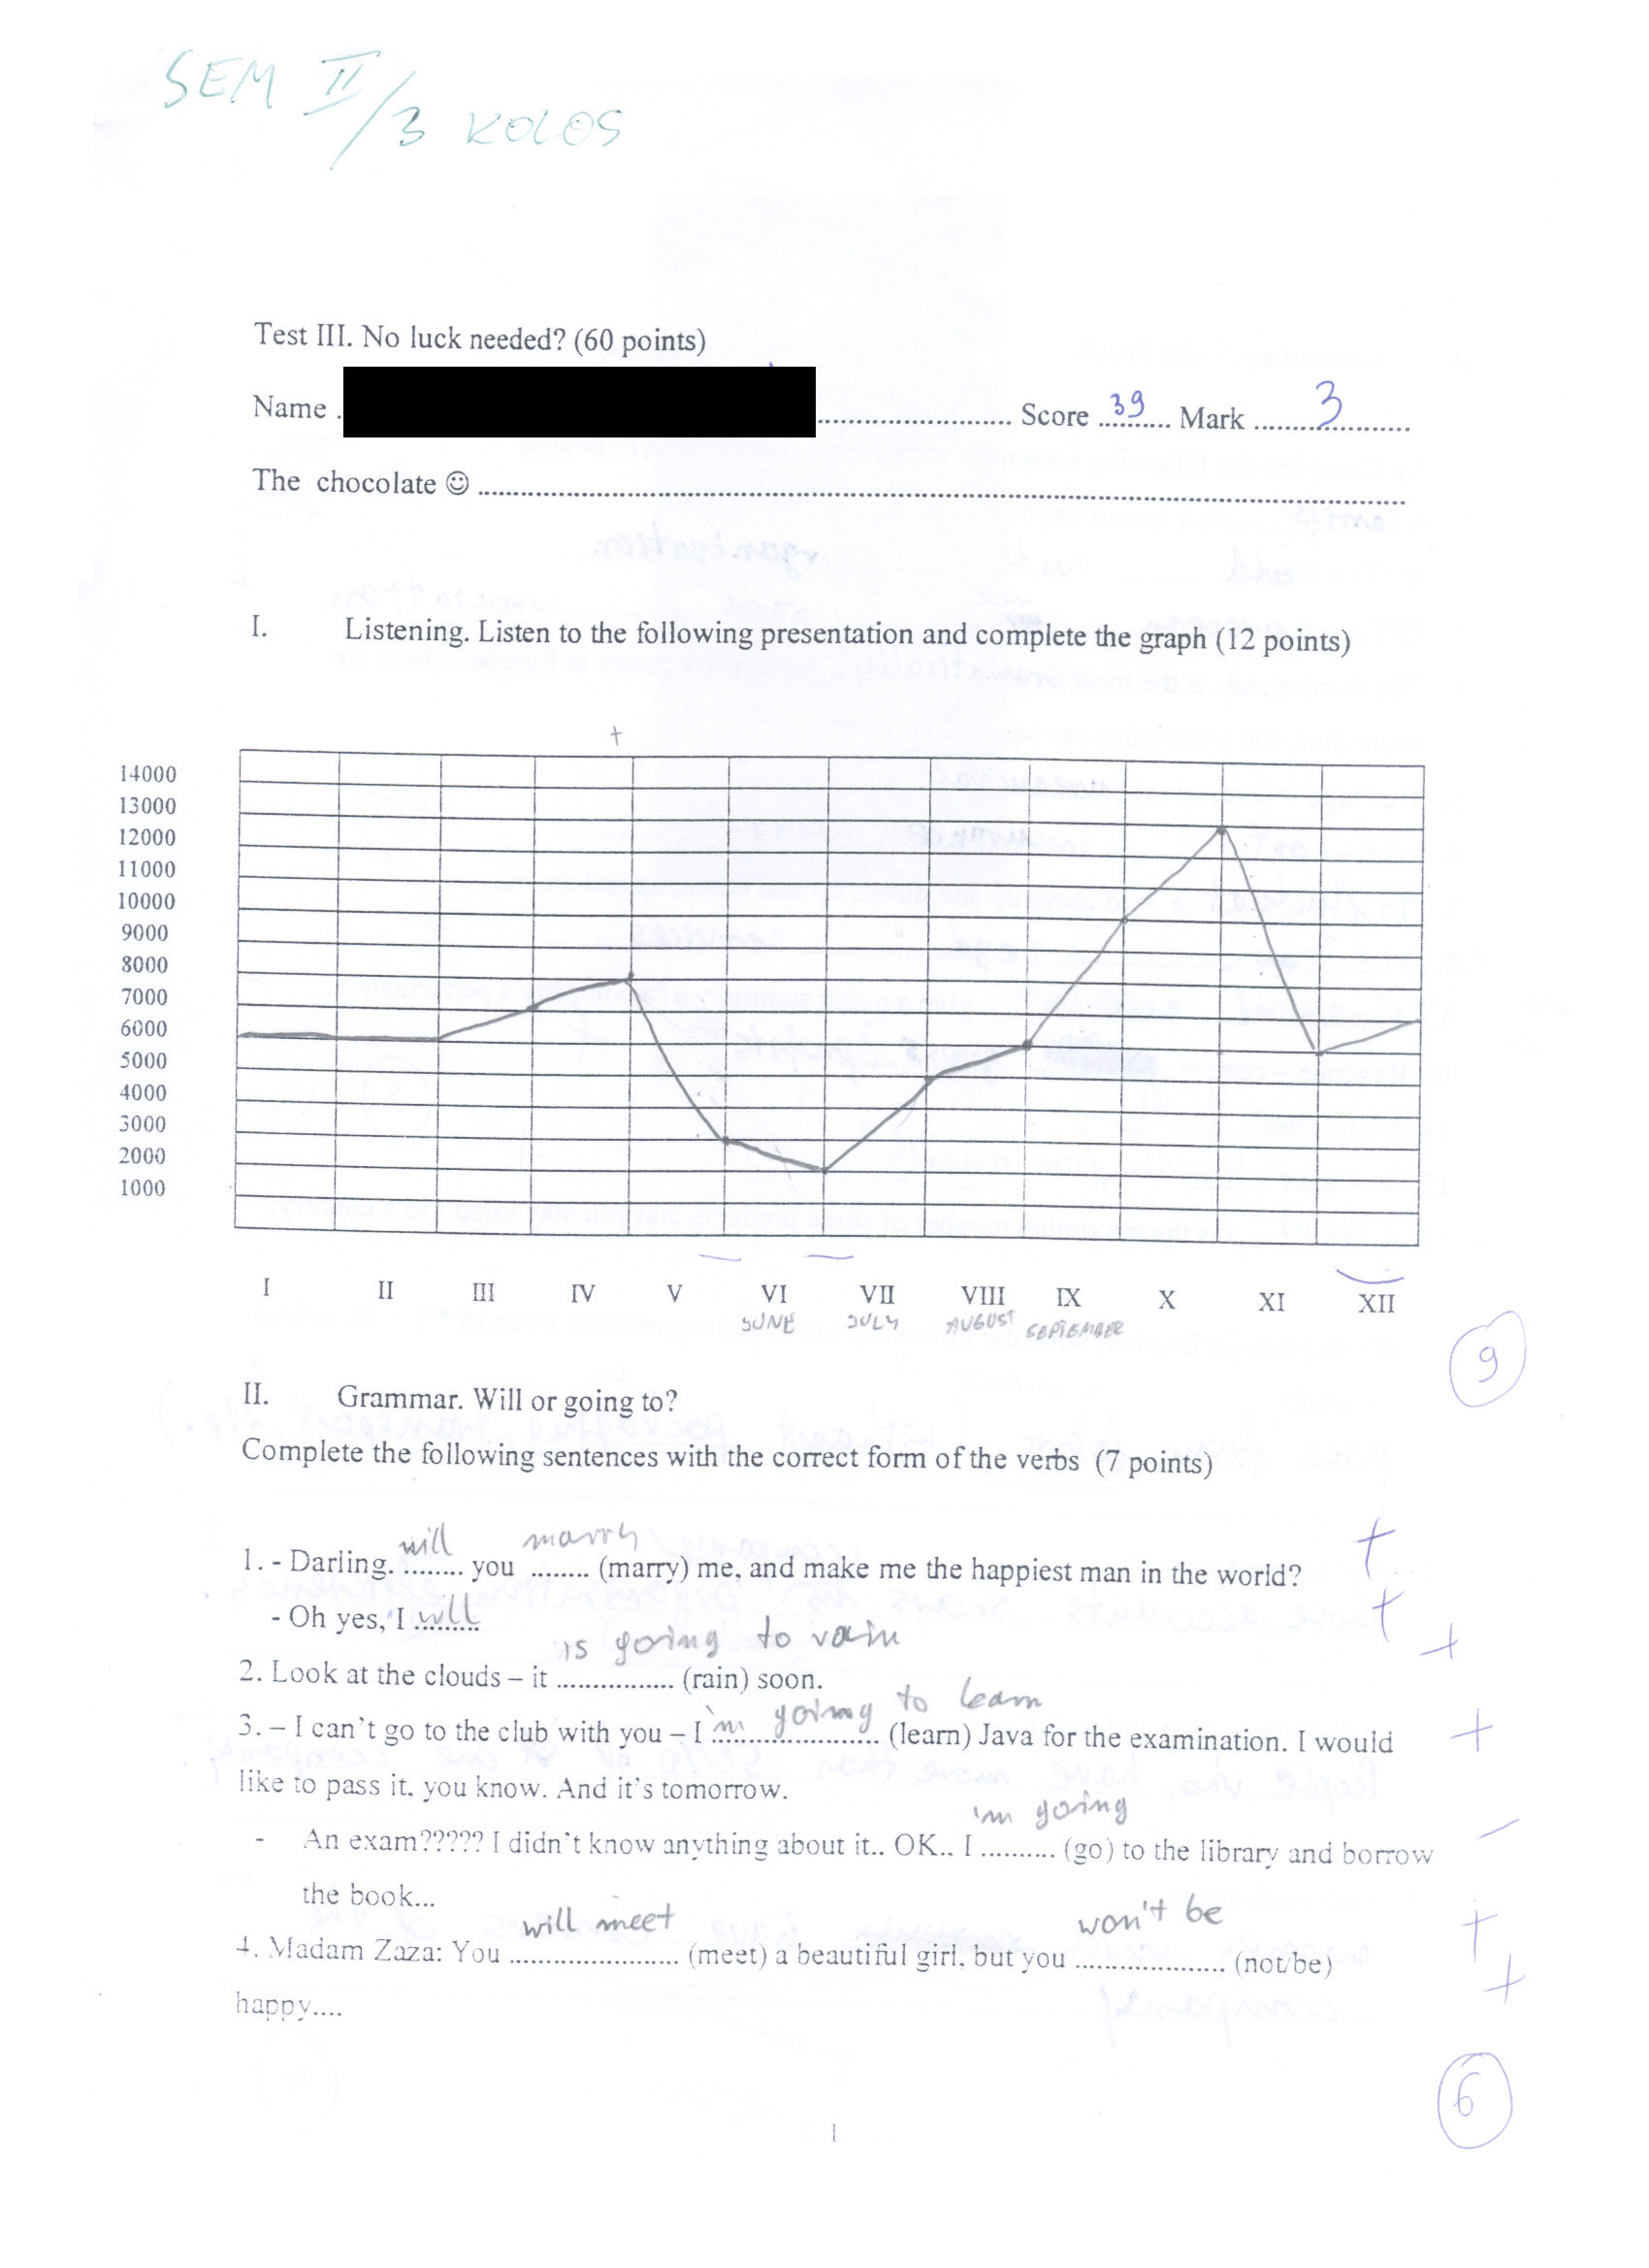 SEM II/3 KOLOS
Test III. No luck needed? (60 points)
Name . .............................. Score 39 Mark 3
The chocolate ☺ ..............................
I. Listening. Listen to the following presentation and complete the graph (12 points)
+
14000
13000
12000
11000
10000
9000
8000
7000
6000
5000
4000
3000
2000
1000
I II III IV V VI VII VIII IX X XI XII
JUNE JULY AUGUST SEPTEMBER
9
II. Grammar. Will or going to?
Complete the following sentences with the correct form of the verbs (7 points)
1. - Darling, will you marry (marry) me, and make me the happiest man in the world? +
- Oh yes, I will +
2. Look at the clouds – it is going to rain (rain) soon. +
3. – I can't go to the club with you – I 'm going to learn (learn) Java for the examination. I would +
like to pass it, you know. And it's tomorrow.
- An exam????? I didn't know anything about it.. OK.. I 'm going (go) to the library and borrow –
the book...
4. Madam Zaza: You will meet (meet) a beautiful girl, but you won't be (not/be) + +
happy....
6
1